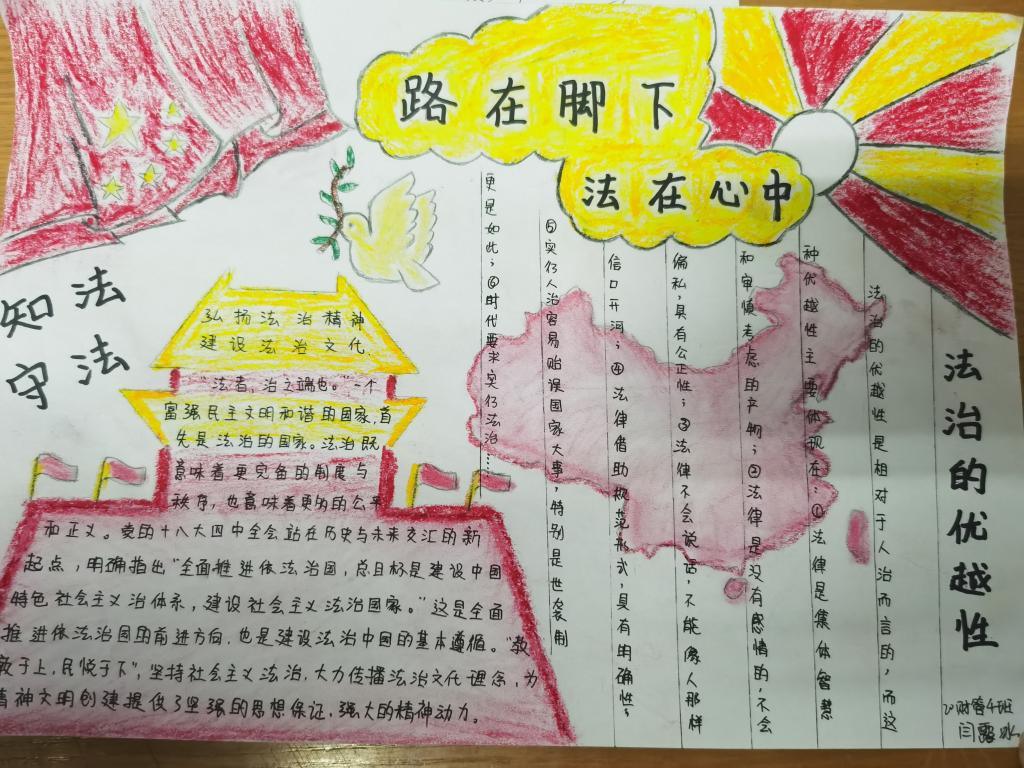 路在脚下
法在心中
知法
守法
弘扬法治精神
建设法治文化
“法者,治之端也。”一个
富强民主文明和谐的国家,首
先是法治的国家。法治既
意味着更完备的制度与
秩序,也意味着更多的公平
和正义。党的十八大四中全会站在历史与未来交汇的新
起点,明确指出“全面推进依法治国,总目标是建设中国
特色社会主义法治体系,建设社会主义法治国家。”这是全面
推进依法治国的前进方向,也是建设法治中国的基本遵循。“教
敦于上,民悦于下”,坚持社会主义法治,大力传播法治文化理念,为
精神文明创建提供了坚强的思想保证,强大的精神动力。
法治的优越性
法治的优越性是相对于人治而言的,而这
种优越性主要体现在:①法律是集体智慧
和审慎考虑的产物;②法律是没有感情的,不会
偏私,具有公正性;③法律不会说话,不能像人那样
信口开河;④法律借助规范形式,具有明确性;
⑤实行人治容易贻误国家大事,特别是世袭制
更是如此;⑥时代要求实行法治……
20财管4班
闫露冰